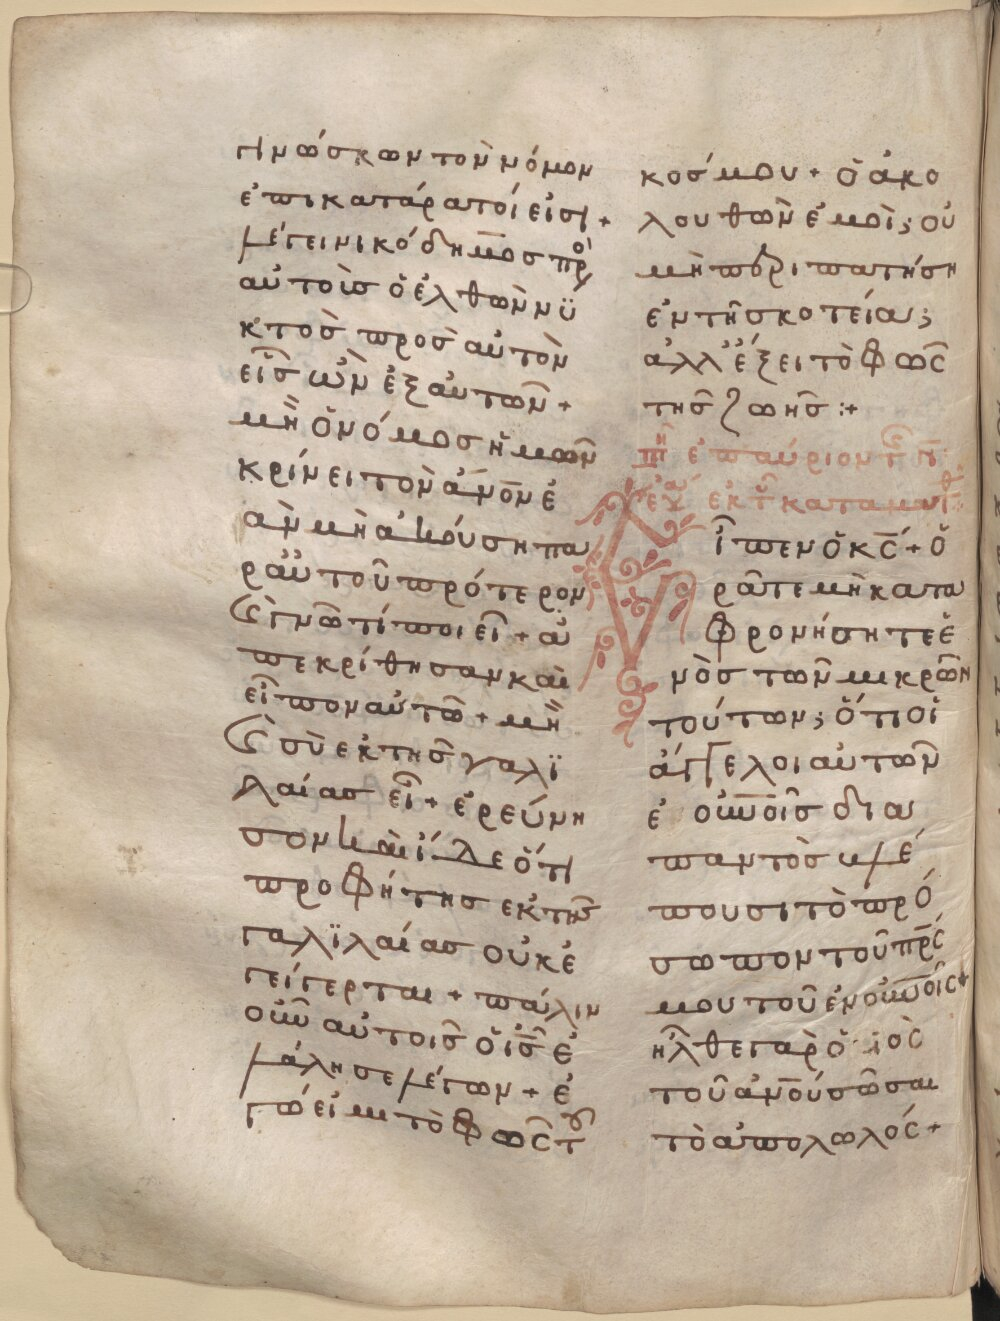 γινώσκων τὸν νόμον
ἐπικατάρατοί εἰσι +
λέγει νικόδημος πρὸ
αὐτοὺσ ὁ ἐλθὼν νϋ
κτὸσ πρὸσ αὐτὸν
εἷσ ὢν ἐξ αὐτῶν +
μὴ ὁ νόμοσ ἡμῶν
κρίνει τὸν ἀ̅ν̅ο̅ν̅ ἐ
ὰν μὴ ἀκούση πα
ρ' αὐτοῦ πρότερον
καὶ γνῶ τί ποιεῖ + ἀ
πεκρίθησαν καὶ
εἶπον αὐτῶ + μὴ
καὶ σὺ ἐκ τῆσ γαλϊ
λαίασ εἶ + ἐρεύνη
σον καὶ ἴδε ὅτι
προφήτησ ἐκ τῆσ
γαλϊλαίασ οὐκ ἐ
γείγερται + πάλιν
οὖν αὐτοῖσ ὁ ι̅σ̅ ἐ
λάλησε λέγων + ἐ
γώ εἰμι τὸ φῶσ τοῦ
κόσμου + ὁ ἀκο
λουθῶν ἐμοὶ; οὐ
μὴ περιπατήση
ἐν τῆ σκοτεία;
ἀλλ' ἕξει τὸ φῶσ
τῆσ ζωῆσ :+
τῆ ἐπαύριον τῆσ Ν̅
εὐα ἐκ τοῦ κατὰ ματθ
Εἶπεν ὁ κ̅σ̅ + ὁ
ρᾶτε μὴ κατα
φρονήσητε ἑ
νὸσ τῶν μικρῶν
τούτων; ὅτι οἱ
ἄγγελοι αὐτῶν
ἐ ο̅υ̅ν̅ο̅ι̅σ̅ δια
παντὸσ βλέ
πουσι τὸ πρό
σωπον τοῦ π̅ρ̅σ̅
μου τοῦ ἐν ο̅υ̅ν̅ο̅ι̅σ̅ +
ἦλθε γὰρ ὁ υἱὸσ
τοῦ ἀ̅ν̅ο̅υ̅ σῶσαι
τὸ ἀπολωλόσ +